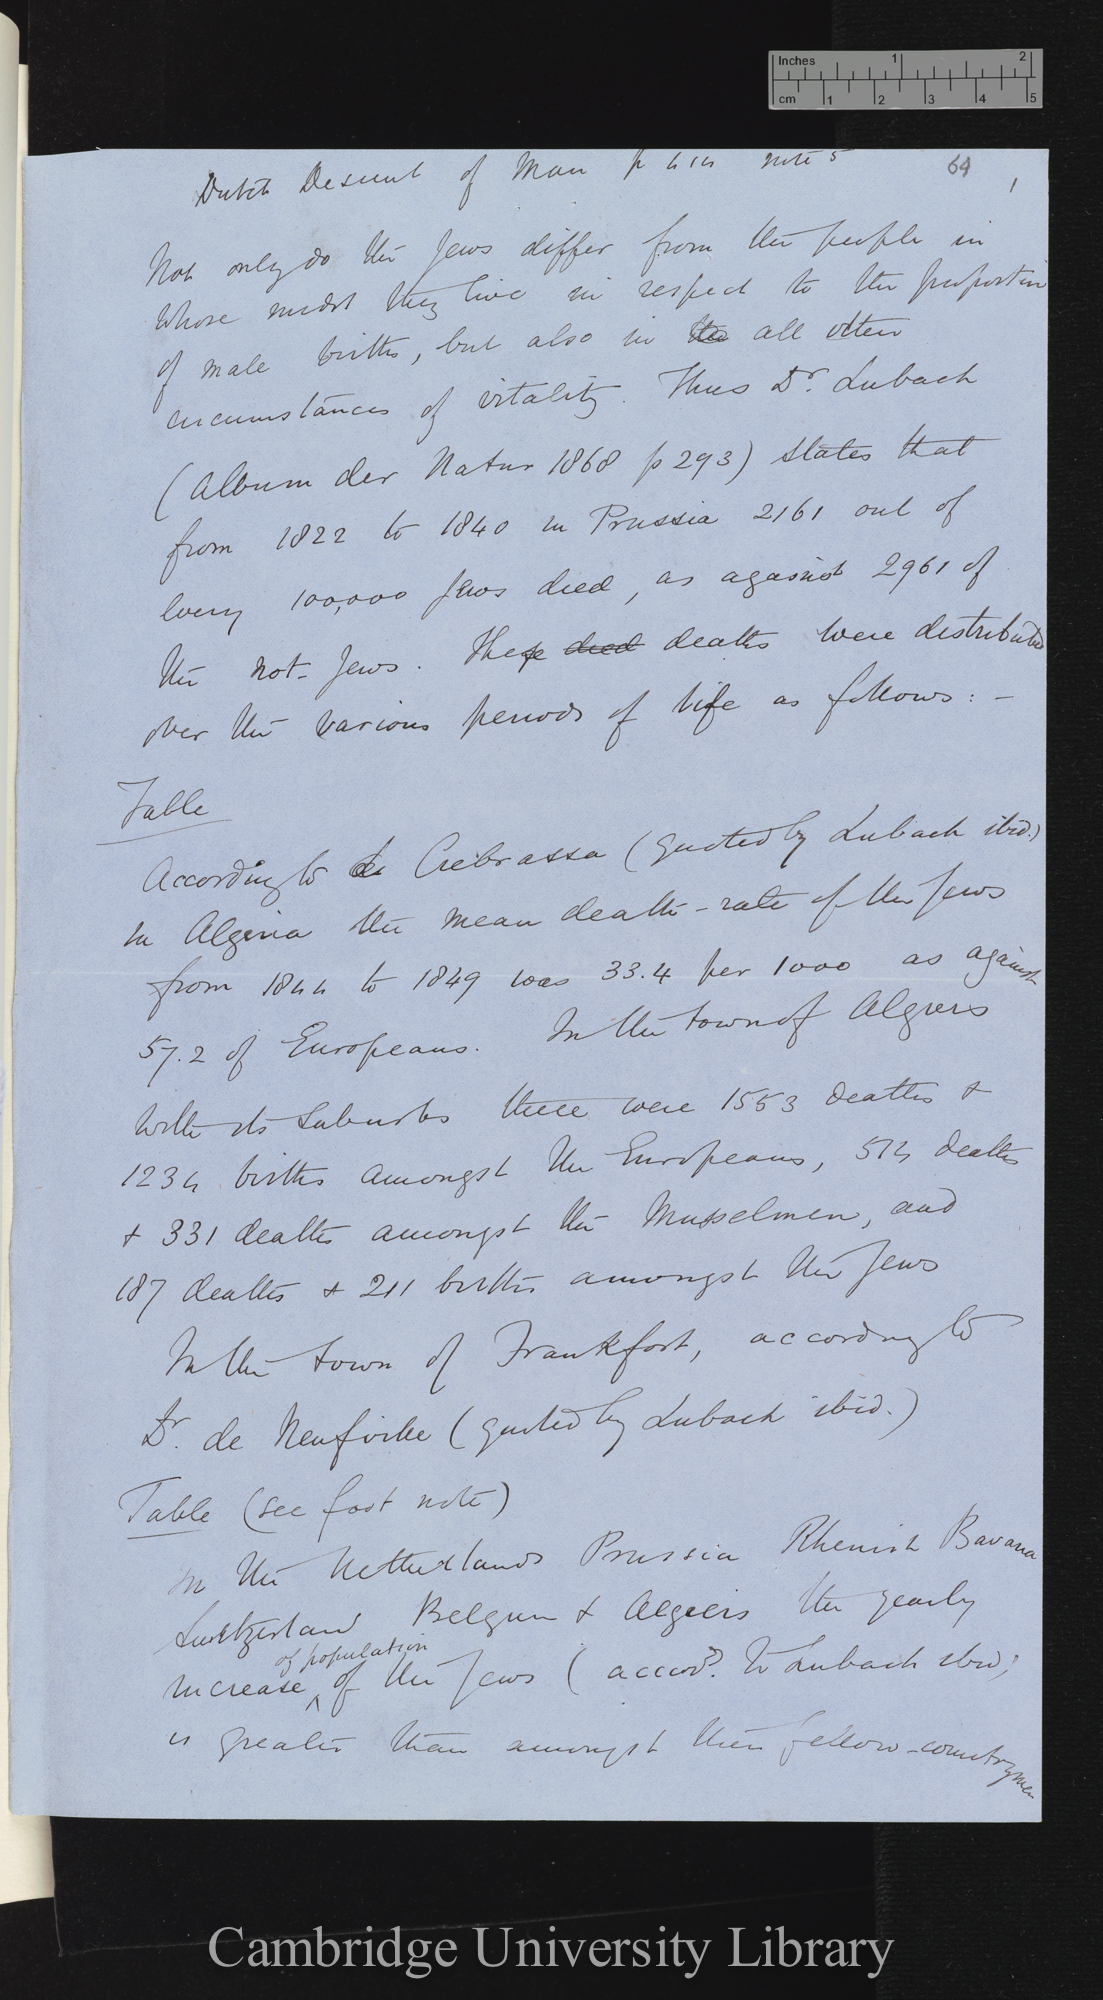 Inches 1 2
cm 1 2 3 4 5
Dutch Descent of Man p 414 note 5
64
1
Not only do the Jews differ from the people in
whose midst they live in respect to the proportion
of male births, but also in the all other
circumstances of vitality. Thus Dr. Lubach
(Album der Natur 1868 p 293) states that
from 1822 to 1840 in Prussia 2161 out of
every 100,000 Jews died, as against 2961 of
the not-Jews. These died deaths were distributed
over the various periods of life as follows: -
Table
According to de Crebrassa (quoted by Lubach ibid.)
in Algeria the mean death-rate of the Jews
from 1844 to 1849 was 33.4 per 1000 as against
57.2 of Europeans. In the town of Algiers
with its suburbs there were 1553 deaths &
1234 births amongst the Europeans, 514 deaths
& 331 deaths amongst the Musselmen, and
187 deaths & 211 births amongst the Jews
In the town of Frankfort, according to
Dr. de Neufville (quoted by Lubach ibid.)
Table (see foot note)
In the Netherlands Prussia Rhenish Bavaria
Switzerland Belgium & Algiers the yearly
increase of population of the Jews (accord. to Lubach ibid;
is greater than amongst their fellow-countrymen
Cambridge University Library